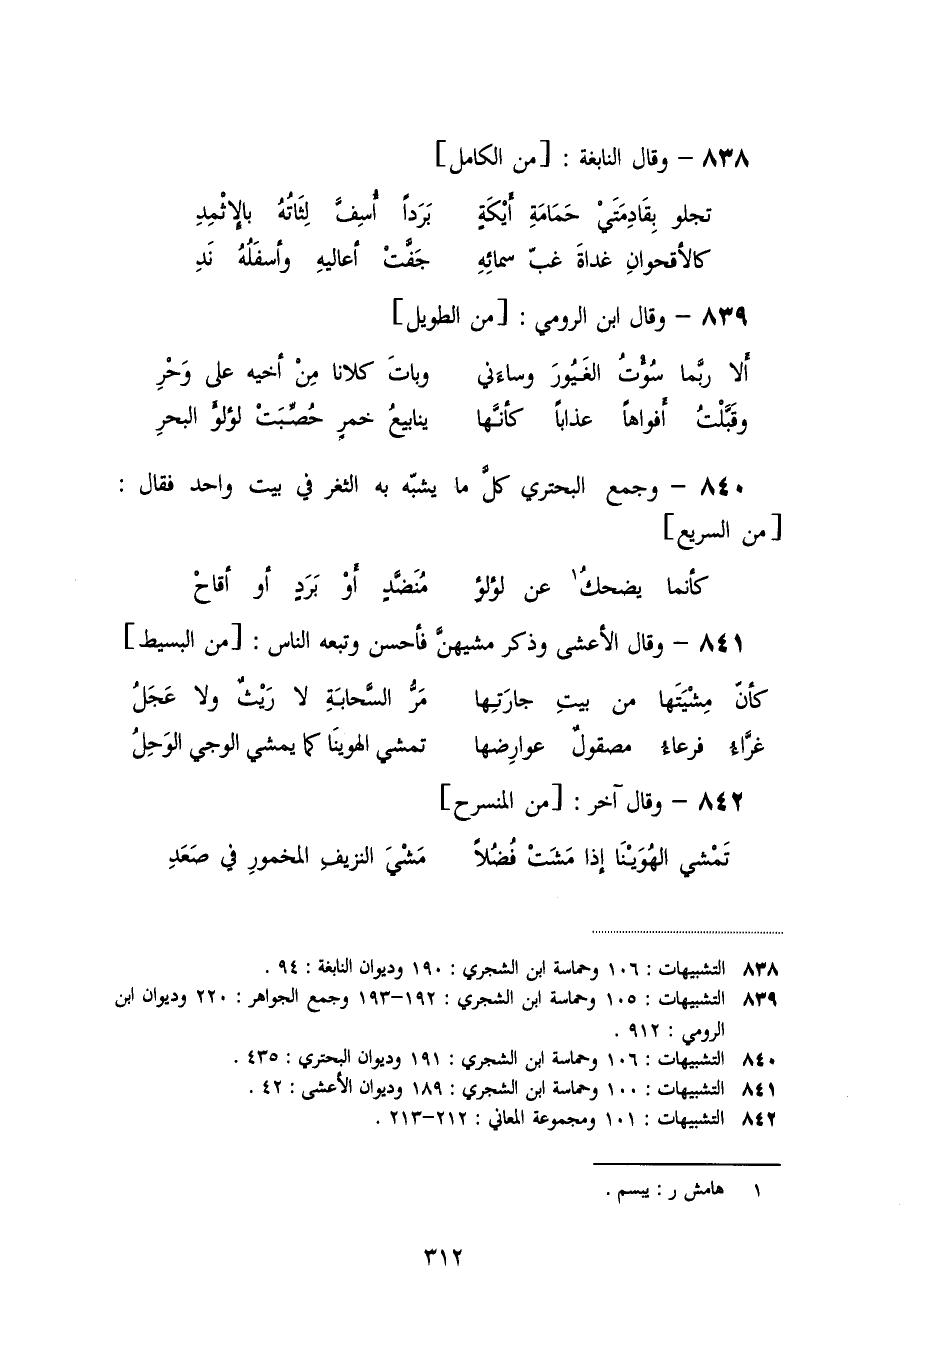 ٨٣٨ – وقال النابغة : [من الكامل]
تجلو بِقَادِمَتَيْ حَمَامَةِ أَيْكَةٍ بَرَداً أُسِفَّ لِثَاتُهُ بالإثْمِدِ
كالأقحوانِ غداةَ غبّ سمائِهِ جَفَّتْ أعاليهِ وأسفَلُهُ نَدِ
٨٣٩ – وقال ابن الرومي : [من الطويل]
ألا ربَّما سُؤْتُ الغَيُورَ وساءَني وباتَ كلانا مِنْ أخيه على وَحْرِ
وقَبَّلْتُ أفواهاً عذاباً كأنَّها ينابيعُ خمرٍ حُصِّبَتْ لؤلؤَ البحرِ
٨٤٠ – وجمع البحتري كلَّ ما يشبّه به الثغر في بيت واحد فقال :
[من السريع]
كأنما يضحكُ١ عن لؤلؤ مُنَضَّدٍ أَوْ بَرَدٍ أو أقاحْ
٨٤١ – وقال الأعشى وذكر مشيهنَّ فأحسن وتبعه الناس : [من البسيط]
كأنّ مِشْيَتَها من بيتِ جارَتِها مَرُّ السَّحابَةِ لا رَيْثٌ ولا عَجَلُ
غرَّاء فرعاء مصقولٌ عوارِضها تمشي الهوينَا كما يمشي الوجي الوَحِلُ
٨٤٢ – وقال آخر : [من المنسرح]
تَمْشي الهُوَيْنَا إذا مَشَتْ فُضُلاً مَشْيَ النزيفِ المخمورِ في صَعَدِ
٨٣٨ التشبيهات : ١٠٦ وحماسة ابن الشجري : ١٩٠ وديوان النابغة : ٩٤ .
٨٣٩ التشبيهات : ١٠٥ وحماسة ابن الشجري : ١٩٢–١٩٣ وجمع الجواهر : ٢٢٠ وديوان ابن
الرومي : ٩١٢ .
٨٤٠ التشبيهات : ١٠٦ وحماسة ابن الشجري : ١٩١ وديوان البحتري : ٤٣٥ .
٨٤١ التشبيهات : ١٠٠ وحماسة ابن الشجري : ١٨٩ وديوان الأعشى : ٤٢ .
٨٤٢ التشبيهات : ١٠١ ومجموعة المعاني : ٢١٢–٢١٣ .
١ هامش ر : يبسم .
٣١٢